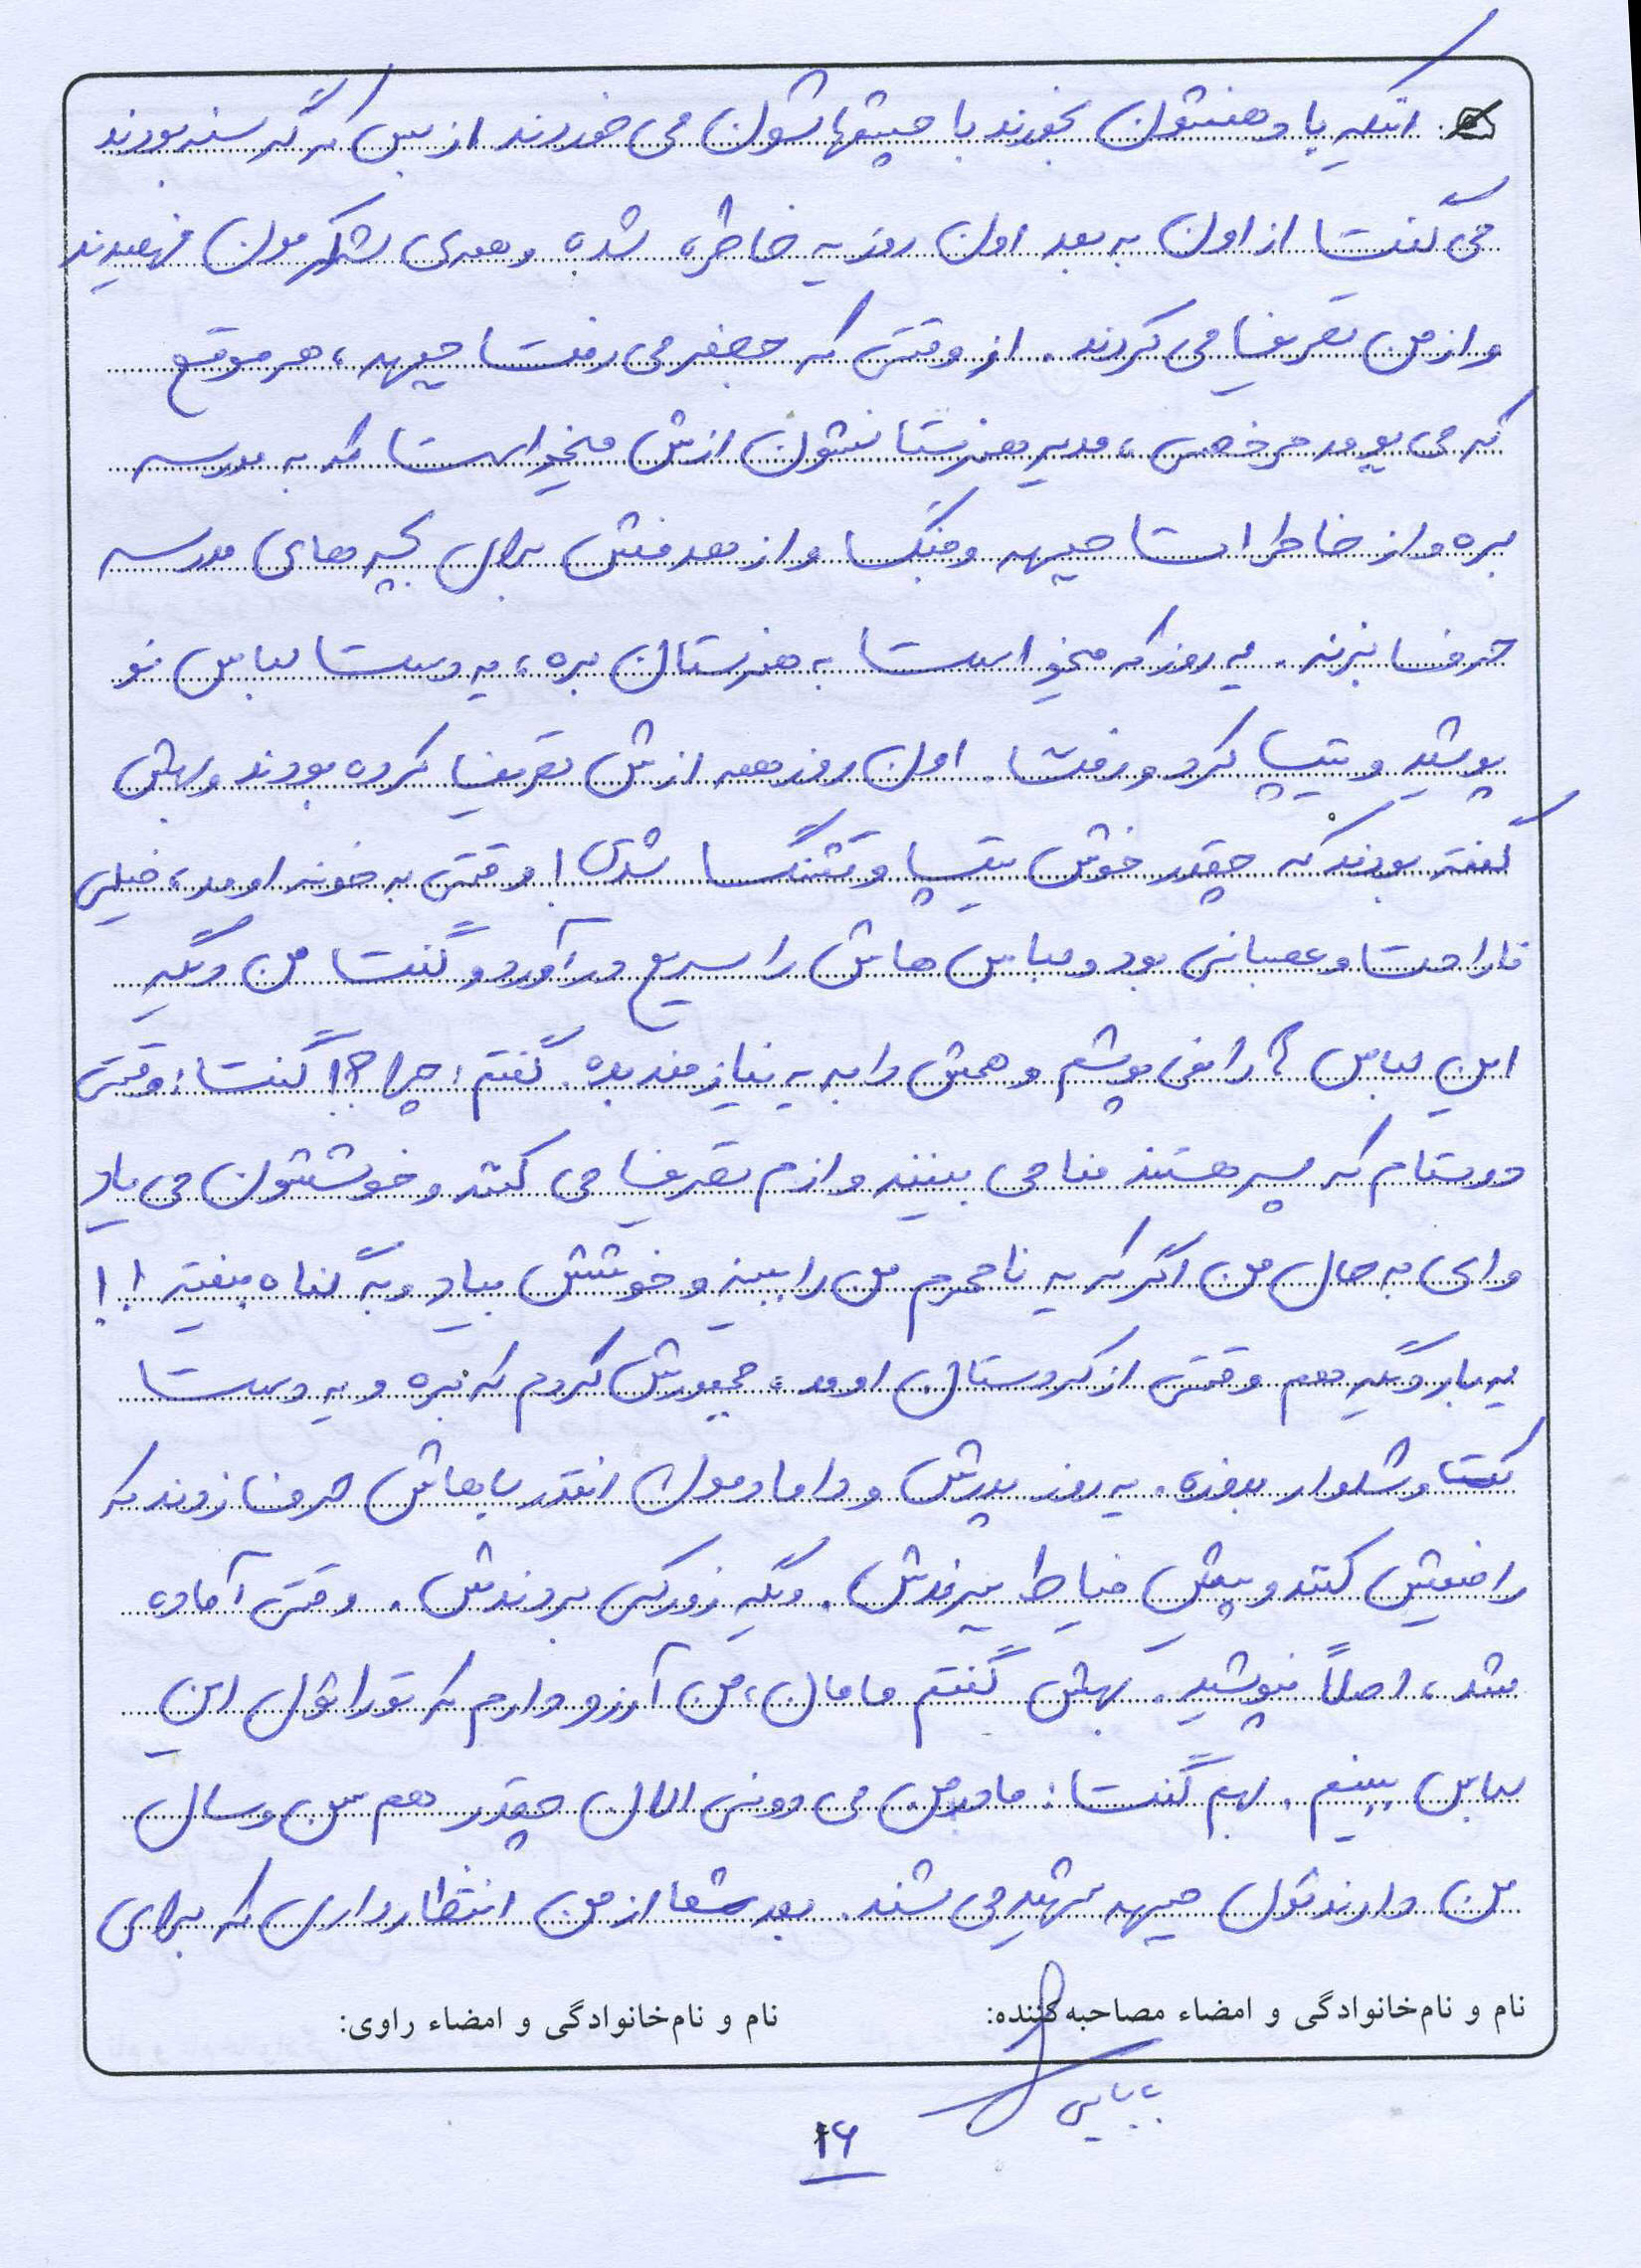 اینکه با دهنشون بخورند با چشمهاشون می خوردند از بس که گرسنه بودند
می گفت از اون به بعد اون روز یه خاطره شده و همه ی لشکرمون فهمیدند
و از من تعریف می کردند. از وقتی که جعفر می رفت جبهه، هر موقع
که می یومد مرخصی، مدیر هنرستانشون ازش میخواست که به مدرسه
بره و از خاطرات جبهه و جنگ و از هدفش برای بچه های مدرسه
حرف بزنه. یه روز که میخواست به هنرستان بره، یه دست لباس نو
پوشید و تیپ کرد و رفت. اون روز همه ازش تعریف کرده بودند و بهش
گفته بودند که چقدر خوش تیپ و قشنگ شدی! وقتی به خونه اومد، خیلی
ناراحت و عصبانی بود و لباس هاش را سریع درآورد و گفت من دیگه
این لباس ها را نمی پوشم و همش را به یه نیازمند بده. گفتم: چرا؟! گفت: وقتی
دوستام که پسر هستند منا می بینند و ازم تعریف می کنند و خوششون می یاد
وای به حال من اگر که یه نامحرم من را ببینه و خوشش بیاد و به گناه بیفته!!
یه بار دیگه هم وقتی از کردستان اومد، مجبورش کردم که بره و یه دست
کت و شلوار بدوزه. یه روز پدرش و دامادمون انقدر باهاش حرف زدند که
راضیش کنند و پیش خیاط ببرندش. دیگه زورکی بردندش. وقتی آماده
شد، اصلاً نپوشید. بهش گفتم مامان، من آرزو دارم که تو را توی این
لباس ببینم. بهم گفت: مادر من می دونی الان چقدر هم سن و سال
من دارند توی جبهه شهید می شند. بعد شما از من انتظار داری که برای
نام و نام‌خانوادگی و امضاء مصاحبه‌کننده: نام و نام‌خانوادگی و امضاء راوی:
بابایی
۱۶